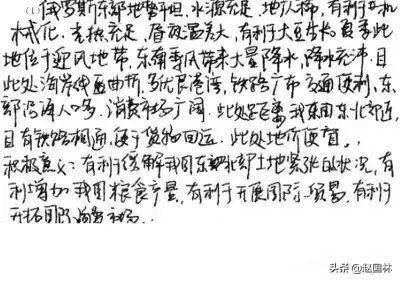 俄罗斯东部地势平坦，水源充足，地广人稀，有利于机
械化。光热充足，昼夜温差大，有利于大豆生长，夏季此
地位于迎风地带，东南季风带来大量降水，降水充沛。且
此处海岸线曲折，多优良港湾，铁路广布，交通便利，东
部沿海人口多，消费市场广阔。此处距离我国东北部近，
且有铁路相通，便于货物回运。此处地价便宜。
积极意义：有利于缓解我国东北部土地紧张的状况，有
利增加我国粮食产量，有利于开展国际贸易，有利于
开拓国际消费市场。
头条 @赵国林